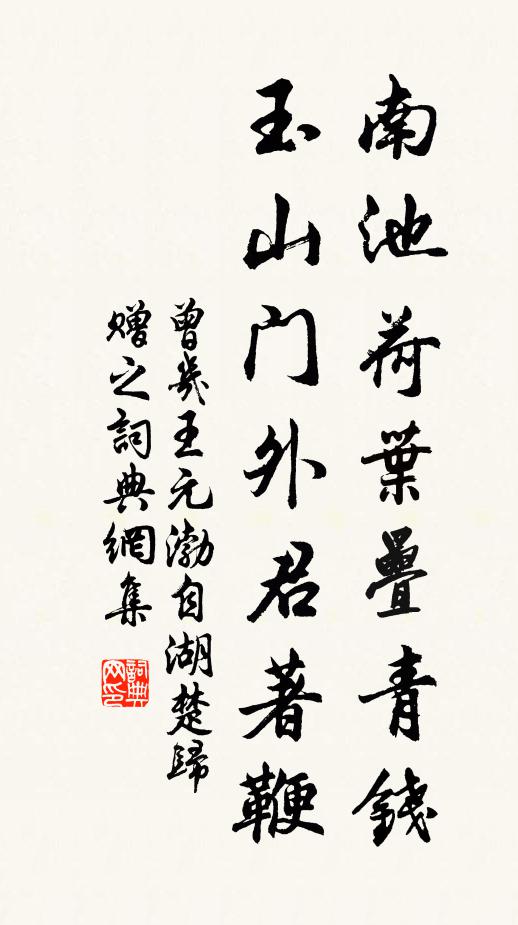 南池荷葉疊青錢
玉山門外君著鞭
曾幾王元渤自湖楚歸
贈之詞典網集
詞典网印